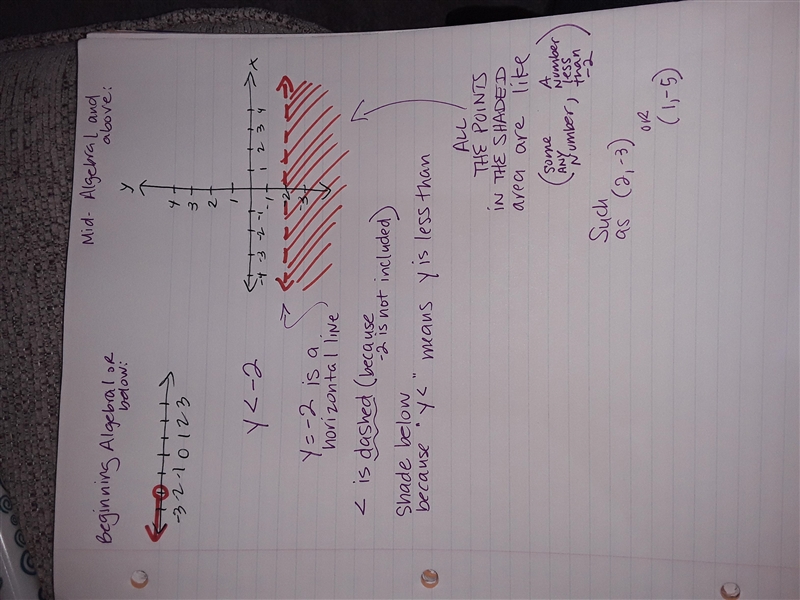 Beginning Algebra1 or
below:
-3 -2 -1 0 1 2 3
Mid-Algebra1 and
above:
y
4
3
2
1
-4 -3 -2 -1 1 2 3 4 x
-1
-2
-3
y < -2
y = -2 is a
horizontal line
< is dashed (because
-2 is not included)
Shade below
because "y<" means y is less than
ALL
THE POINTS
IN THE SHADED
area are like
(some
ANY
Number, A
number
less
than
-2)
Such
as (2, -3)
OR
(1, -5)